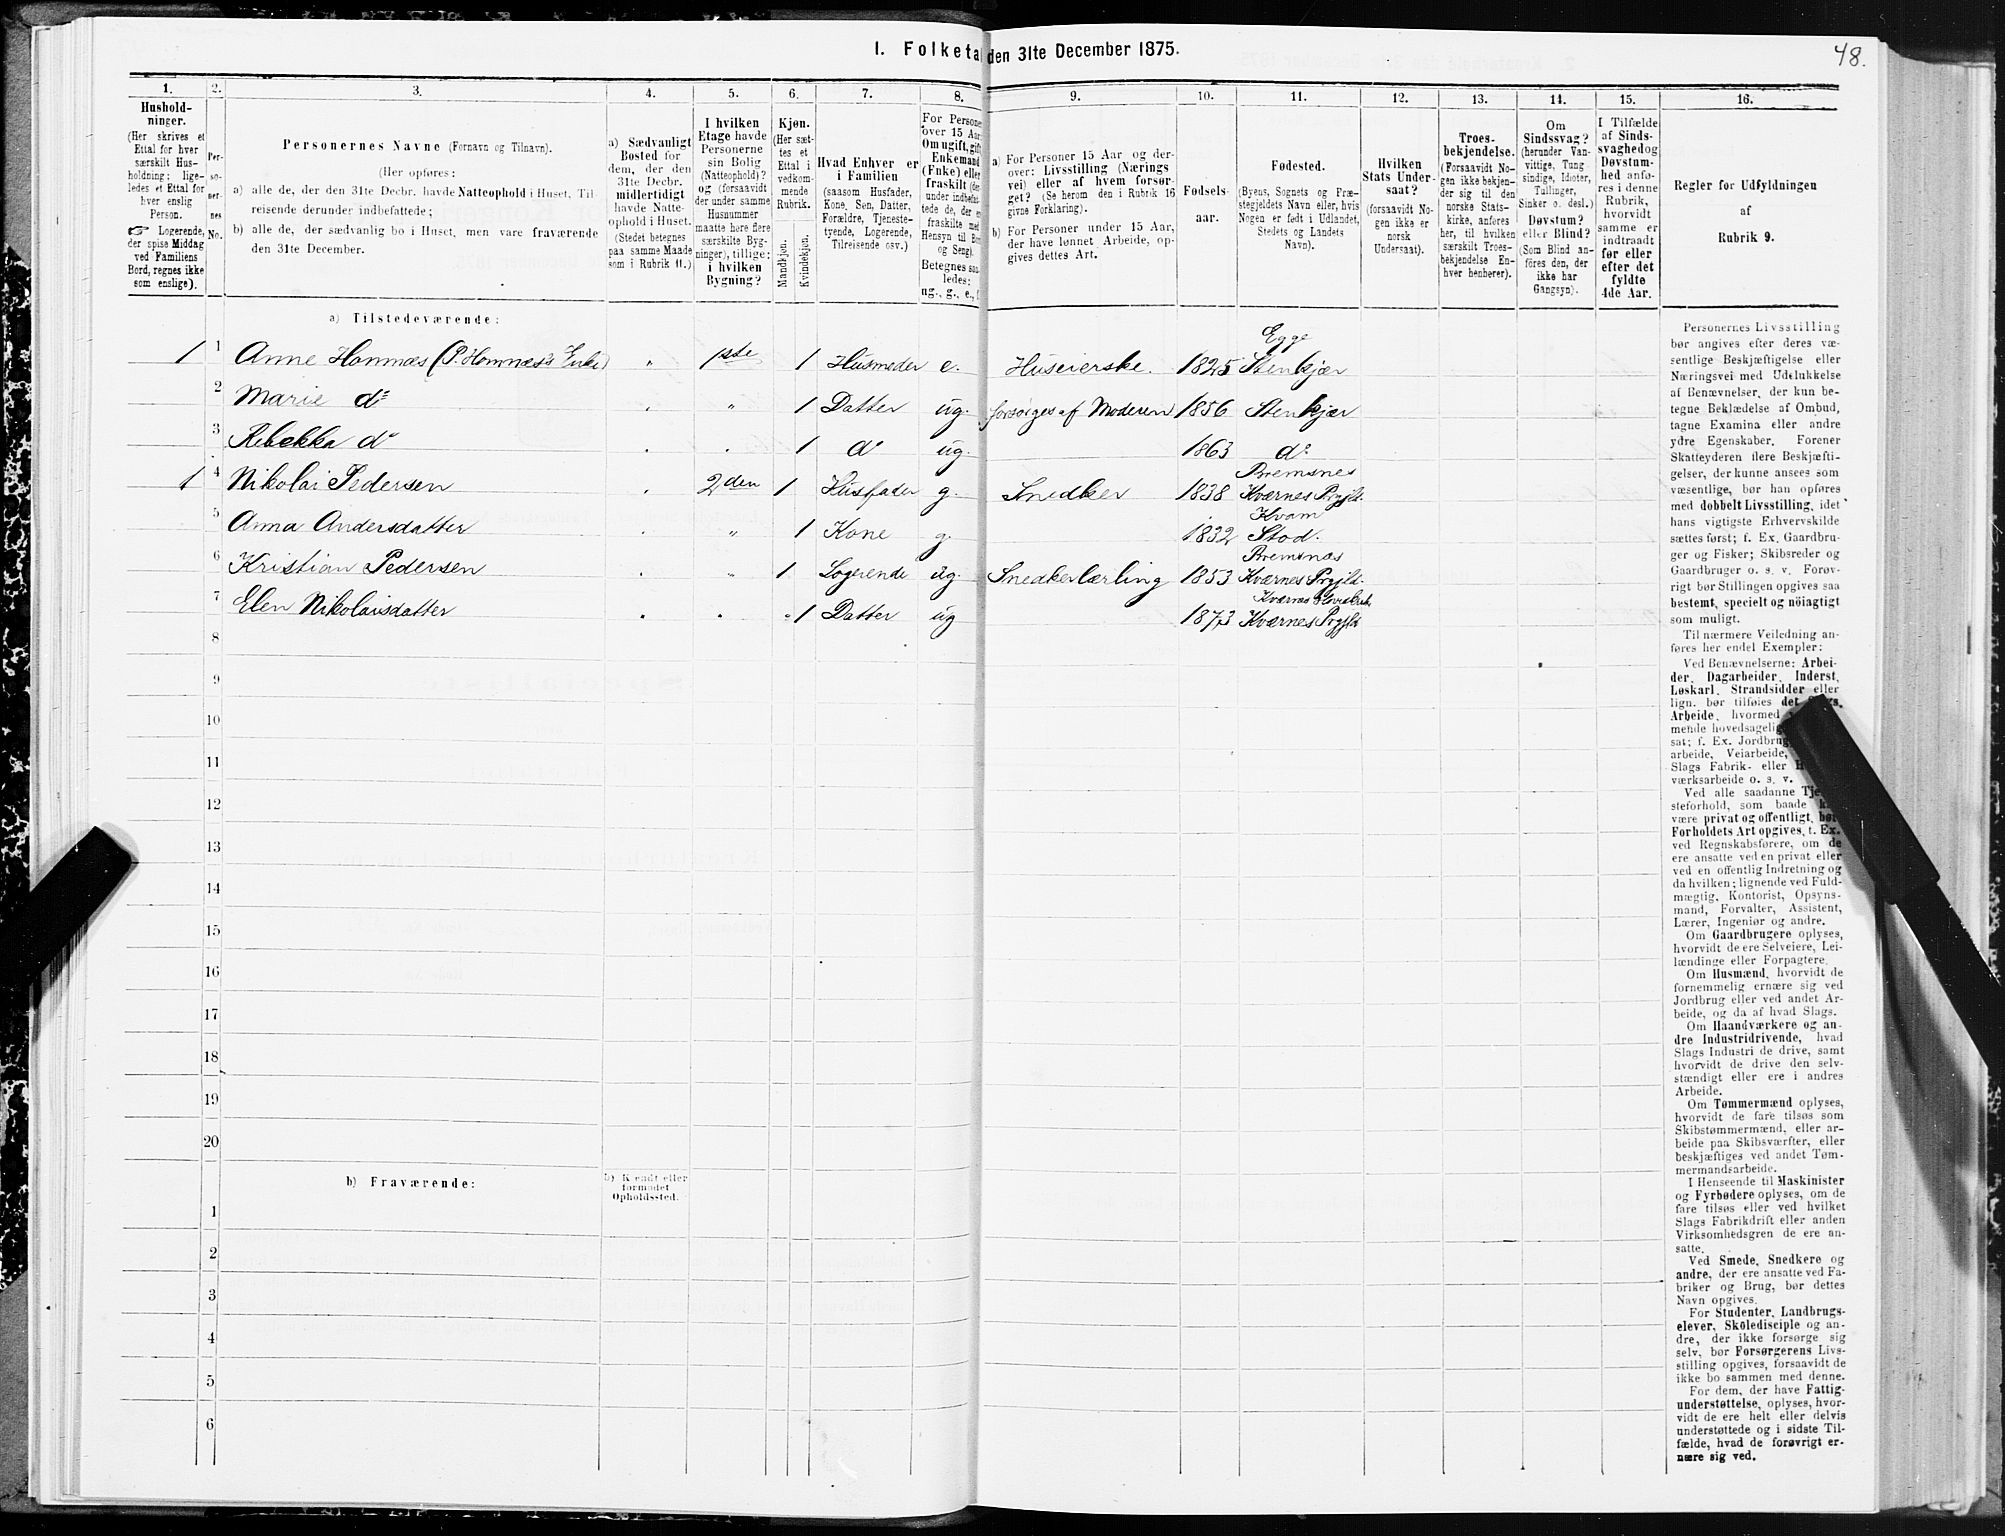 48.
I. Folketal den 31te December 1875.
1. 2. 3. 4. 5. 6. 7. 8. 9. 10. 11. 12. 13. 14. 15. 16.
Hushold-
ninger.
(Her skrives et
Ettal for hver
særskilt Hus-
holdning; lige-
ledes et Ettal for
hver enslig
Person.
☞ Logerende,
der spise Middag
ved Familiens
Bord, regnes ikke
som enslige).
Per-
so-
ner-
nes
No.
Personernes Navne (Fornavn og Tilnavn).
(Her opføres:
a) alle de, der den 31te Decbr. havde Natteophold i Huset, Til-
reisende derunder indbefattede;
b) alle de, der sædvanlig bo i Huset, men vare fraværende
den 31te December.
a) Sædvanligt
Bosted for
dem, der den
31te Decbr.
midlertidigt
havde Natte-
ophold i Huset.
(Stedet betegnes
paa samme Maade
som i Rubrik 11.)
I hvilken
Etage havde
Personerne
sin Bolig
(Natteophold)?
og (forsaavidt
der under samme
Husnummer
maatte høre flere
særskilte Byg-
ninger), tillige:
i hvilken
Bygning?
Kjøn.
(Her sæt-
tes et
Ettal i
vedkom-
mende
Rubrik.
Mandkjøn.
Kvindekjøn.
Hvad Enhver er
i Familien
(saasom Husfader,
Kone, Søn, Datter,
Forældre, Tjeneste-
tyende, Logerende,
Tilreisende osv.)
For Persone
over 15 Aar
Om ugift, gift
Enkemand
(Enke) eller
fraskilt (der-
under indbefat-
tede de, der er
fraskilte med
Hensyn til Bord
og Seng).
Betegnes saa-
ledes:
ug., g., e., f.
a) For Personer 15 Aar og der-
over: Livsstilling (Nærings
vei) eller af hvem forsør-
get? (Se herom den i Rubrik 16
givne Forklaring).
b) For Personer under 15 Aar,
der have lønnet Arbeide, op-
gives dettes Art.
Fødsels-
aar.
Fødested.
(Byens, Sognets og Præ-
stegjeldets Navn eller, hvis
Nogen er født i Udlandet,
Stedets og Landets
Navn).
Hvilken
Stats Under-
saat?
(forsaavidt No-
gen ikke er
norsk
Undersaat).
Troes-
bekjendelse.
(Forsaavidt No-
gen ikke bekjen-
der sig til den
norske Stats-
kirke, anføres
her, til hvilken
særskilt Troes-
bekjendelse En-
hver henhører).
Om
Sindssvag?
(herunder Van-
vittige, Tung-
sindige, Idioter,
Tullinger,
Sinker o. desl.)
Døvstum?
eller Blind?
(Som Blind an-
føres den, der
ikke har
Gangsyn).
I Tilfælde
af Sinds-
svaghed og
Døvstum-
hed anfø-
res i denne
Rubrik,
hvorvidt
samme er
indtraadt
før eller
efter det
fyldte
4de Aar.
Regler for Udfyldningen
af
Rubrik 9.
a) Tilstedeværende:
Egge
1 1 Anne Homnæs (P. Homnæs's Enke) " 1ste 1 Husmoder e. Huseierske. 1825 Stenkjær
2 Marie do " 1 Datter ug. forsørges af Moderen 1856 Stenkjær
3 Rebekka do 1 do ug. 1863 do
Bremsnes
1 4 Nikolai Pedersen 2den 1 Husfader g. Snedker 1838 Kværnes Prgjld.
Kvam
5 Anna Andersdatter " 1 Kone g. 1832 Stod.
Bremsnæs
6 Kristian Pedersen " 1 Logerende ug. Snedkerlærling 1853 Kværnes Prgjld.
Kværnes
7 Elen Nikolaisdatter 1 Datter ug 1873 Kværnes Prgjld
8
9
10
11
12
13
14
15
16
17
18
19
20
b) Fraværende:
b) Kjendt eller
formodet
Opholdssted.
1
2
3
4
5
6
Personernes Livsstilling
bør angives efter deres væ-
sentlige Beskjæftigelse eller
Næringsvei med Udelukkelse
af Benævnelser, der kun be-
tegne Beklædelse af Ombud,
tagne Examina eller andre
ydre Egenskaber. Forener
Skatteyderen flere Beskjæfti-
gelser, der kunne ansees som
væsentlige, bør han opføres
med dobbelt Livsstilling, idet
hans vigtigste Erhvervskilde
sættes først; f. Ex. Gaardbru-
ger og Fisker; Skibsreder og
Gaardbruger o. s. v. Forøv-
rigt bør Stillingen opgives saa
bestemt, specielt og nöiagtigt
som muligt.
Til nærmere Veiledning an-
føres her endel Exempler:
Ved Benævnelserne: Arbei-
der, Dagarbeider, Inderst,
Løskarl, Strandsidder eller
lign. bør tilføies det Slags
Arbeide, hvormed
mende hovedsagelig
sat; f. Ex. Jordbrug
arbeide, Veiarbeide,
Slags Fabrik- eller
værksarbeide o. s. v.
Ved alle saadanne Tje-
steforhold, som baade
være privat og offentligt, bør
Forholdets Art opgives, t. Ex.
ved Regnskabsførere, om de
ere ansatte ved en privat eller
ved en offentlig Indretning og
da hvilken; lignende ved Fuld-
mægtig, Kontorist, Opsyns-
mand, Forvalter, Assistent,
Lærer, Ingeniør og andre.
Om Gaardbrugere oplyses,
hvorvidt de ere Selveiere, Lei-
lændinge eller Forpagtere.
Om Husmænd, hvorvidt de
fornemmelig ernære sig ved
Jordbrug eller ved andet Ar-
beide, og da af hvad Slags.
Om Haandværkere og an-
dre Industridrivende, hvad
Slags Industri de drive, samt
hvorvidt de drive den selv-
stændigt eller ere i andres
Arbeide.
Om Tømmermænd oplyses,
hvorvidt de fare tilsøs som
Skibstømmermænd, eller ar-
beide paa Skibsværfter, eller
beskjæftiges ved andet Tøm-
mermandsarbeide.
I Henseende til Maskinister
og Fyrbødere oplyses, om de
fare tilsøs eller ved hvilket
Slags Fabrikdrift eller anden
Virksomhedsgren de ere an-
satte.
Ved Smede, Snedkere og
andre, der ere ansatte ved Fa-
briker og Brug, bør dettes
Navn opgives.
For Studenter, Landbrugs-
elever, Skoledisciple og an-
dre, der ikke forsørge sig
selv, bør Forsørgerens Livs-
stilling opgives, forsaavidt de
ikke bo sammen med denne.
For dem, der have Fattig-
understøttelse, oplyses, hvor-
vidt de ere helt eller delvis
understøttede og i sidste Til-
fælde, hvad de forøvrigt er-
nære sig ved.